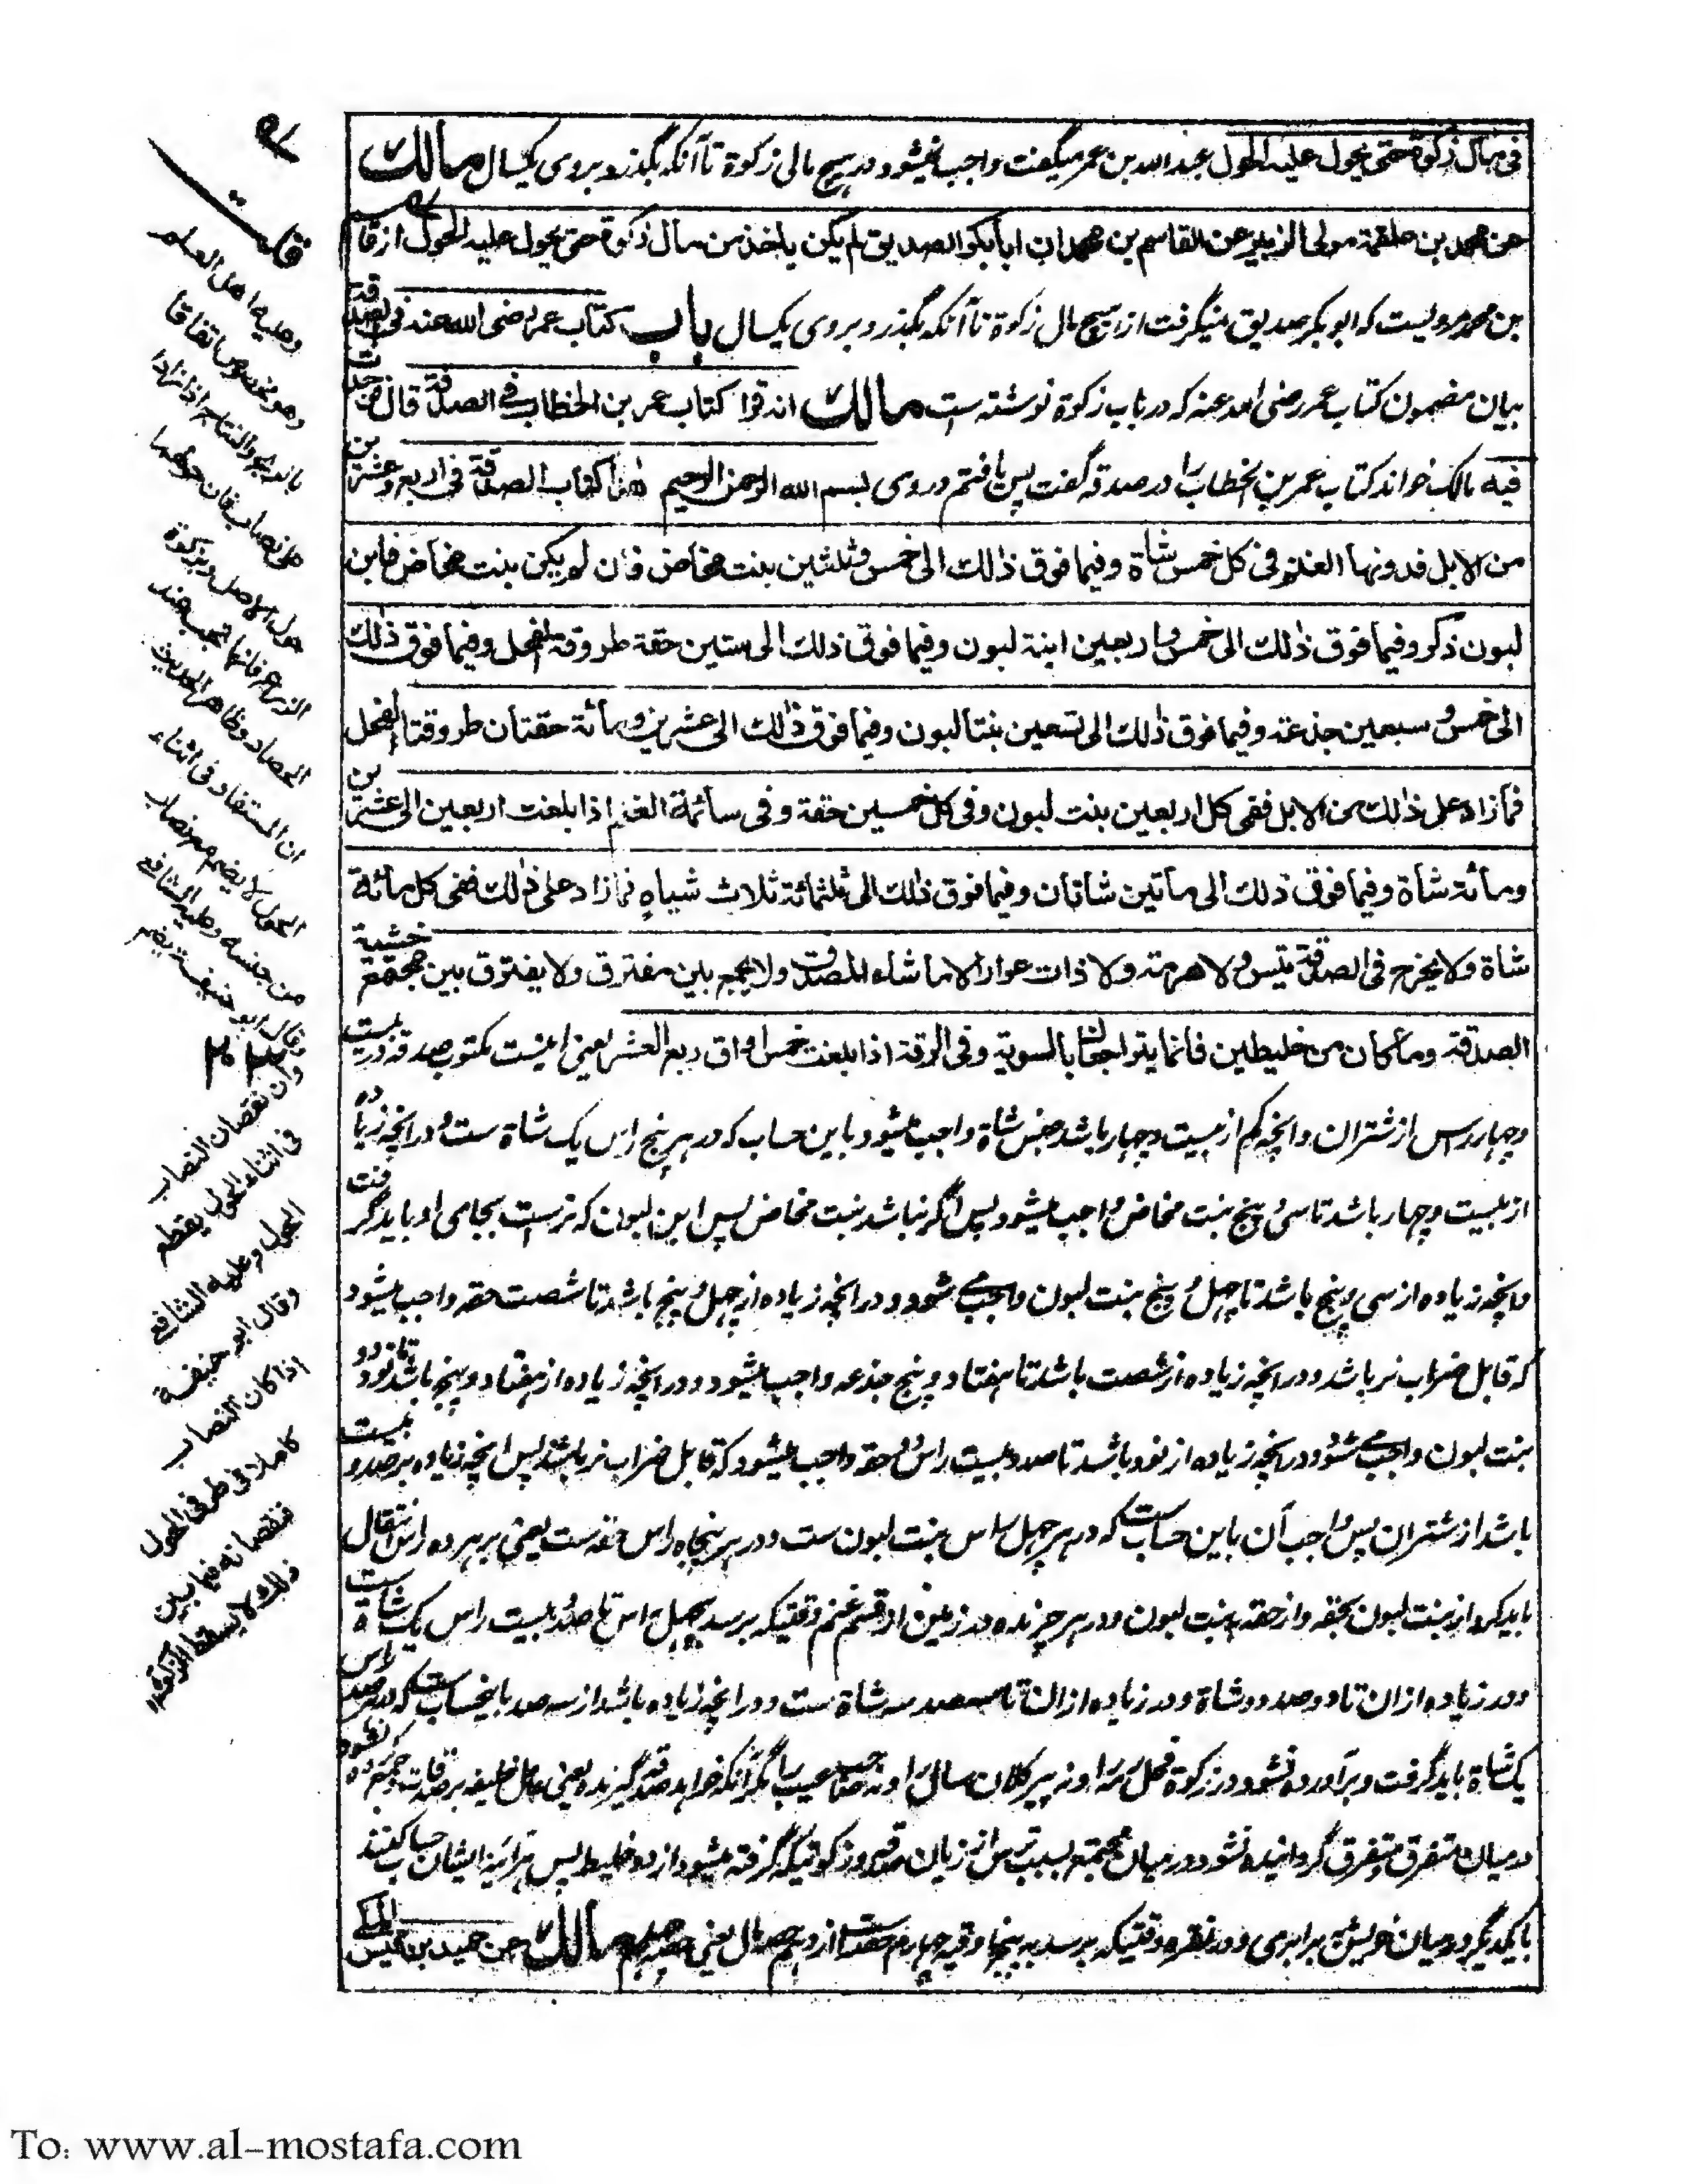 فى مال زكوة حتى يحول عليه الحول عبد الله بن عمر ميگفت واجب نميشود در هيچ مالى زكوة تا آنكه بگذرد بروى يكسال مالك
عن محمد بن علقمة مولى الزبير عن القاسم بن محمد ان ابا بكر الصديق لم يكن ياخذ من مال زكوة حتى يحول عليه الحول از قاسم
بن محمد مرويست كه ابو بكر صديق نميگرفت از هيچ مال زكوة تا آنكه بگذرد بروى يكسال باب كتاب عمر رضى الله عنه فى الصدقة
بيان مضمون كتاب عمر رضى الله عنه كه در باب زكوة نوشته است مالك انه قرا كتاب عمر بن الخطاب فى الصدقة قال فوجدت
فيه مالك خواند كتاب عمر بن الخطاب را در صدقه گفت پس يافتم در وى بسم الله الرحمن الرحيم هذا كتاب الصدقة فى اربع وعشرين
من الابل فدونها الغنم فى كل خمس شاة وفيما فوق ذلك الى خمس وثلثين بنت مخاض فان لم يكن بنت مخاض فابن
لبون ذكر وفيما فوق ذلك الى خمس واربعين ابنة لبون وفيما فوق ذلك الى ستين حقة طروقة الفحل وفيما فوق ذلك
الى خمس وسبعين جذعة وفيما فوق ذلك الى تسعين بنتا لبون وفيما فوق ذلك الى عشرين ومائة حقتان طروقتا الفحل
فما زاد على ذلك من الابل ففى كل اربعين بنت لبون وفى كل خمسين حقة وفى سائمة الغنم اذا بلغت اربعين الى عشرين
ومائة شاة وفيما فوق ذلك الى مأتين شاتان وفيما فوق ذلك الى ثلثمائة ثلاث شياه فما زاد على ذلك ففى كل مائة
شاة ولا يخرج فى الصدقة تيس ولا هرمة ولا ذات عوار الا ما شاء المصدق ولا يجمع بين مفترق ولا يفترق بين مجتمع خشية
الصدقة وما كان من خليطين فانما يتراجعان بالسوية وفى الرقة اذا بلغت خمس اواق ربع العشر يعنى اينست مكتوب صدقه در بيست
وچهار راس از شتران وانچه كم از بيست وچهار باشد جنس شاة واجب ميشود باين حساب كه در هر پنج راس يك شاة ست ودر انچه زياده
از بيست وچهار باشد تا سى وپنج بنت مخاض واجب ميشود پس اگر نباشد بنت مخاض پس ابن لبون كه نرست بجاى او بايد گرفت
وانچه زياده از سى وپنج باشد تا چهل وپنج بنت لبون واجب مى شود ودر انچه زياده از چهل وپنج باشد تا شصت حقه واجب ميشود
كه قابل ضراب نر باشد ودر انچه زياده از شصت باشد تا هفتاد وپنج جذعه واجب ميشود ودر انچه زياده از هفتاد وپنج باشد تا نود دو
بنت لبون واجب مى شود ودر انچه زياده از نود باشد تا صد وبيست راس دو حقه واجب ميشود كه قابل ضراب نر باشند پس انچه زياده بر صد وبيست
باشد از شتران پس واجب آن باين حساب ست كه در هر چهل راس بنت لبون ست ودر هر پنجاه راس حقه ست يعنى بر هر ده راس انتقال
بايد كرد از بنت لبون بحقه واز حقه به بنت لبون ودر هر چرنده در زمين از قسم غنم وقتيكه برسد بچهل راس تا صد وبيست راس يك شاة ست
ودر زياده ازان تا دو صد دو شاة ودر زياده ازان تا سه صد سه شاة ست ودر انچه زياده باشد از سه صد باينحساب ست كه در هر صد راس
يك شاة بايد گرفت وبرآورده نشود در زكوة فحل رمه را ونه پير كلان سال را ونه صاحب عيب را مگر آنكه خواهد صدقه گيرنده يعنى عامل خليفه بر صدقات وجمع كرده نشود
در ميان متفرق ومتفرق گردانيده نشود در ميان مجتمع بسبب ترس از زيان صدقه وزكوتيكه گرفته ميشود از دو خليط پس هر آئينه ايشان حساب كنند
با يكديگر در ميان خويش برابرى ودر نقره وقتيكه برسد به پنج اوقيه چهارم حصه است از دهم حصه مال يعنى چهلم حصه مالك عن حميد بن قيس المكى
قلت
وعليه اهل العلم
وهو مخصوص اتفاقا
بالربح والنتاج اذا نزادا
على نصاب فان حولهما
حول الاصل وبزكوة
الزرع فانها تجب عند
الحصاد وظاهر الحديث
ان المستفاد فى اثناء
الحول لا يضم مع نصاب
من جنسه وعليه الشافعى
وقال ابو حنيفة يضم
وان نقصان النصاب
فى اثناء الحول يقطع
الحول وعليه الشافعى
وقال ابو حنيفة
اذا كان النصاب
كاملا فى طرفى الحول
فنقصانه فيما بين
ذلك لا يسقط الزكوة
To: www.al-mostafa.com